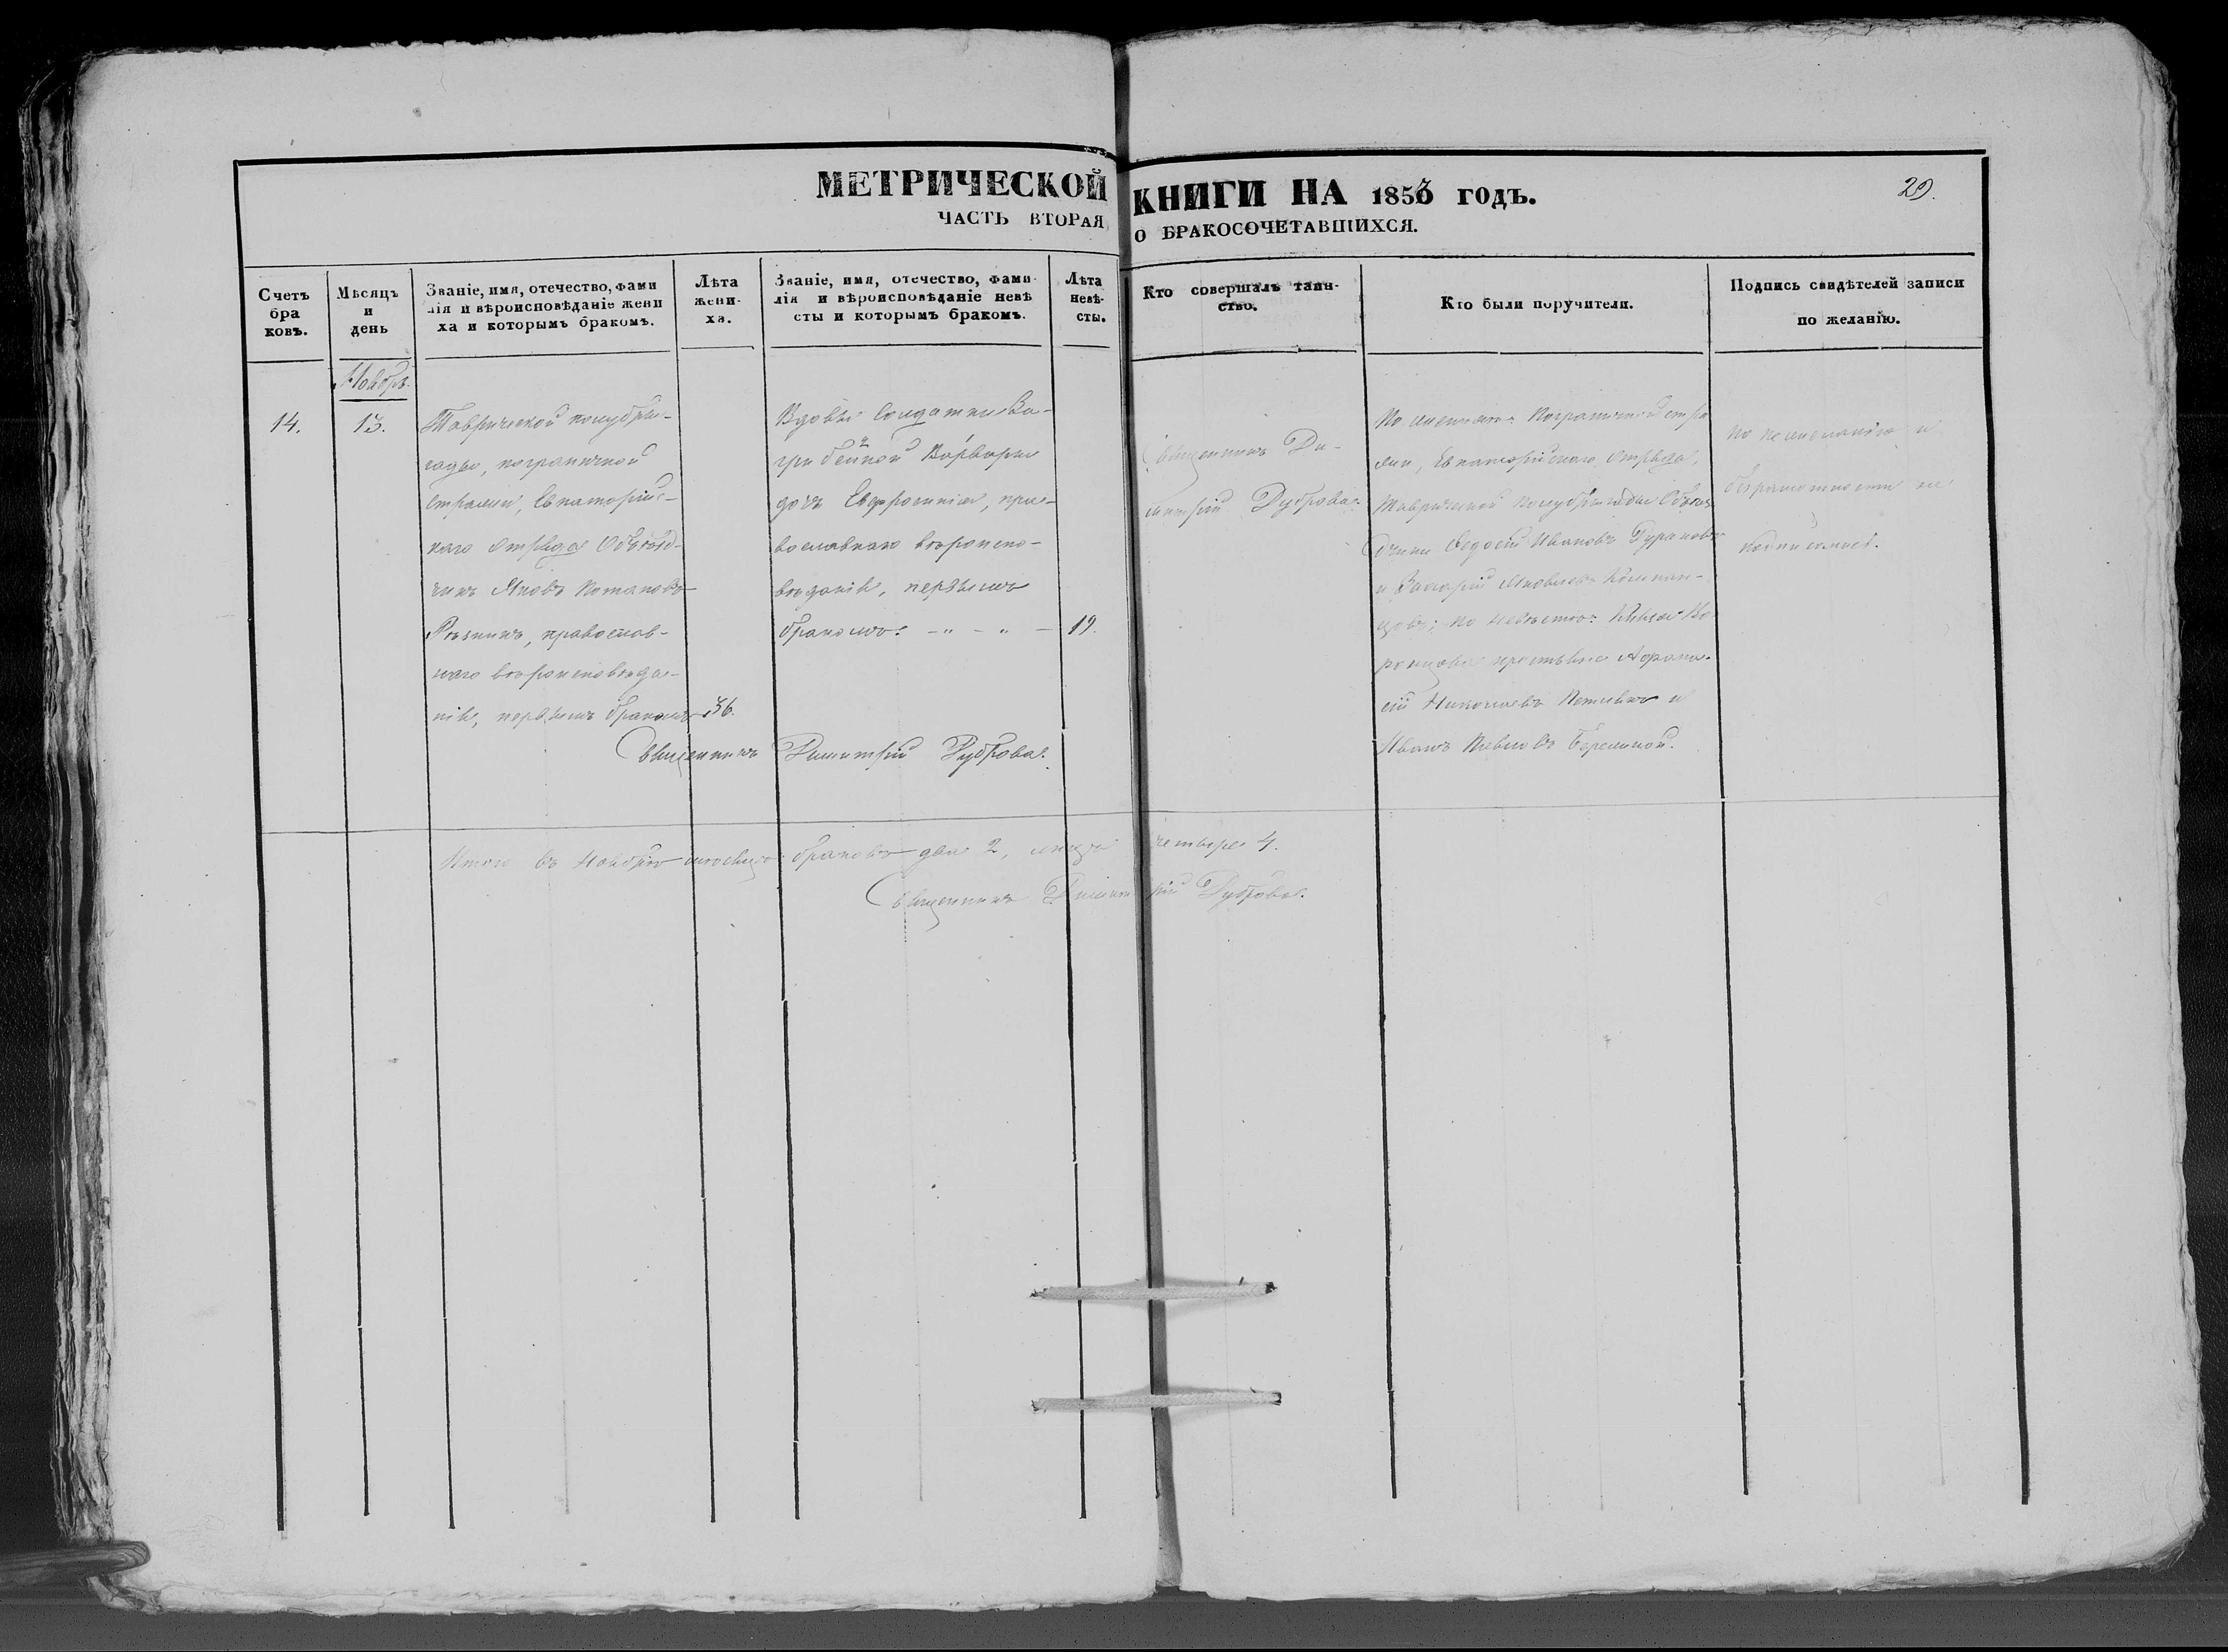 МЕТРИЧЕСКОЙ КНИГИ НА 1853 годъ.
29.
ЧАСТЬ ВТОРАЯ О БРАКОСОЧЕТАВШИХСЯ.
Счетъ бра ковъ.
Мѣсяцъ и день
Званіе, имя, отечество, фами
лія и вѣроисповѣданіе жени
ха и которымъ бракомъ.
Лѣта жени- ха.
Званіе, имя, отечество, фами-
лія и вѣроисповѣданіе невѣ
сты и которымъ бракомъ.
Лѣта невѣ- сты.
Кто совершалъ таин-
ство.
Кто были поручители.
Подпись свидѣтелей записи
по желанію.
Ноябрь.
14.
13.
Таврической полубри-
гады, пограничной
стражи, Евпаторійс-
каго отряда Объѣзд-
чикъ Яковъ Потаповъ
Рѣзникъ, православ-
наго вѣроисповѣда-
нія, первымъ бракомъ
36.
Вдовы Солдатки
Варвары
дочь Евфросинія, пра-
вославнаго вѣроиспо-
вѣданія, первымъ
бракомъ.
19.
Священникъ Ди-
митрій Дуброва.
По женихѣ: Пограничной стра
жи, Евпаторійскаго отряда,
Таврической Полубригады Объѣз
дчики Федосій Ивановъ
и Яковлевъ
по невѣстѣ:
Николаевъ и
Иванъ Павловъ
По неумѣнію и
безграмотности не
Священникъ Димитрій Дуброва.
Итого въ Ноябрѣ мѣсяцѣ браковъ два 2, лицъ четыре 4.
Священникъ Димитрій Дуброва.